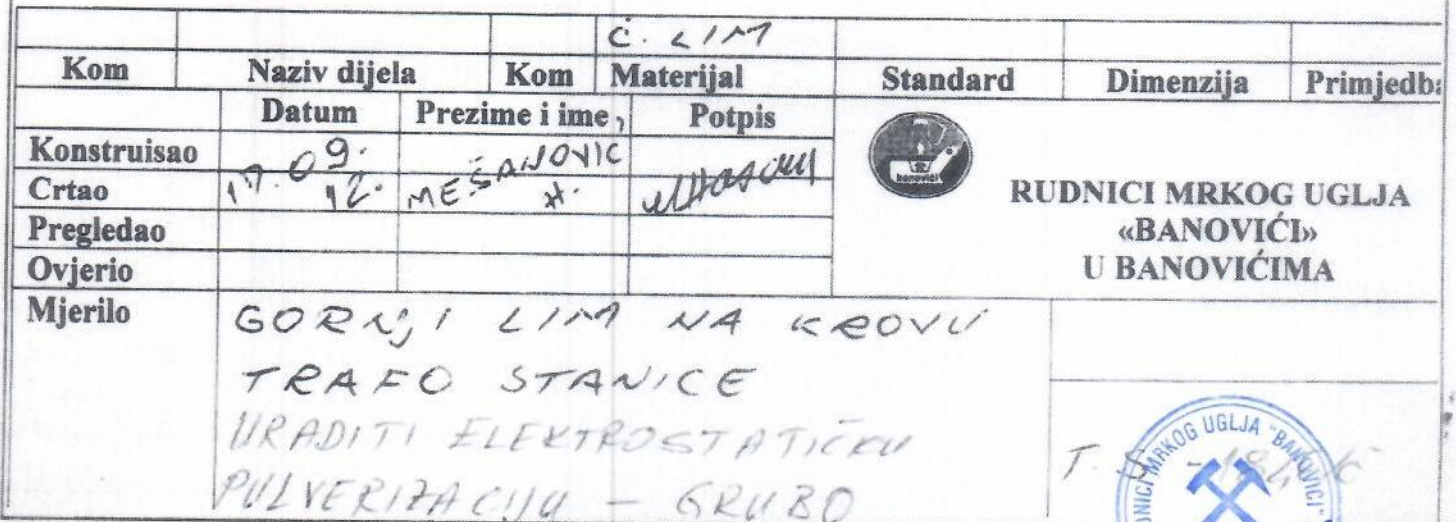 Č. LIM
Kom Naziv dijela Kom Materijal Standard Dimenzija Primjedba
Datum Prezime i ime, Potpis
Konstruisao 17.09. MEŠANOVIĆ
Crtao 12. H.
Pregledao
Ovjerio
banovići
RUDNICI MRKOG UGLJA
«BANOVIĆI»
U BANOVIĆIMA
Mjerilo GORNJI LIM NA KROVU
TRAFO STANICE
URADITI ELEKTROSTATIČKU
PULVERIZACIJU - GRUBO
RUDNICI MRKOG UGLJA "BANOVIĆI"